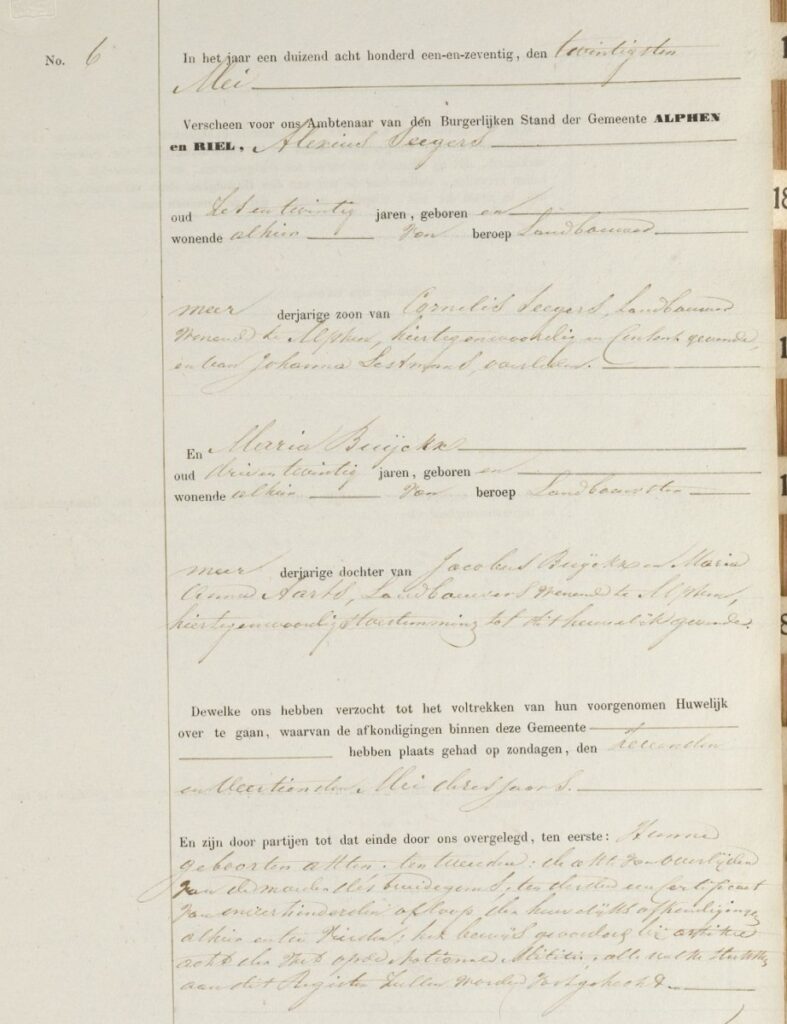 No. 6
In het jaar een duizend acht honderd een-en-zeventig, den twintigsten
Mei
Verscheen voor ons Ambtenaar van den Burgerlijken Stand der Gemeente ALPHEN
en RIEL, Alexius Seegers
oud zes en twintig jaren, geboren en
wonende alhier van beroep Landbouwer
meer derjarige zoon van Cornelis Seegers, Landbouwer
wonend te Alphen, hiertegenwoordig en Consent gevende,
en van Johanna overleden.
En Maria Buijckx
oud drie en twintig jaren, geboren en
wonende alhier van beroep Landbouwster
meer derjarige dochter van Jacobus Buijckx en Maria
Anna Aarts, Landbouwers wonend te Alphen,
hiertegenwoordig toestemming tot dit huwelijk gevende.
Dewelke ons hebben verzocht tot het voltrekken van hun voorgenomen Huwelijk
over te gaan, waarvan de afkondigingen binnen deze Gemeente
hebben plaats gehad op zondagen, den zevenden
en veertienden Mei dezes jaars.
En zijn door partijen tot dat einde door ons overgelegd, ten eerste: Hunne
geboorten akten; ten tweeden: de akte van overlijden
van de moeder des bruidegoms; ten derden een certificaat
van onverhinderden afloop der huwelijks afkondigingen
alhier en te het bewijs gevorderd bij artikel
acht der Wet op de Nationale Militie; alle welke stukken
aan dit Register zullen worden vastgehecht.